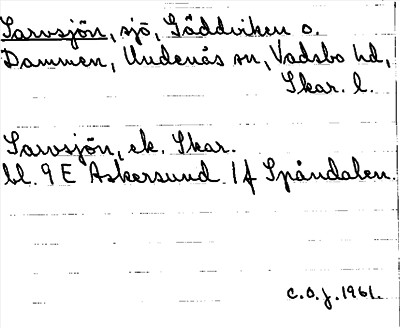 Sarvsjön, sjö, Gäddviken o.
Dammen, Undenäs sn, Vadsbo hd,
Skar. l.
Sarvsjön, ek. Skar.
bl. 9 E Askersund 1 f Spåndalen.
C.O.J. 1961.